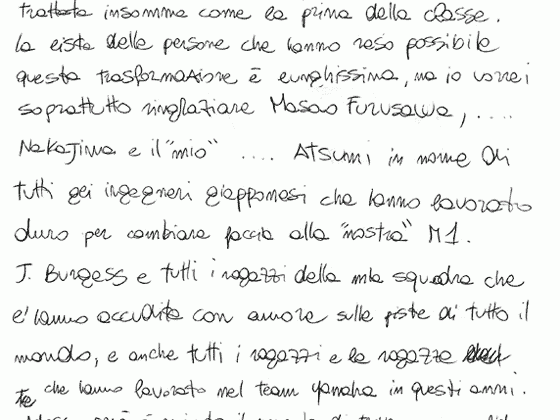 trattata insomma come la prima della classe.
la lista delle persone che hanno reso possibile
questa trasformazione è lunghissima, ma io vorrei
soprattutto ringraziare Masao Furusawa, ....
Nakajima e il "mio" .... Atsumi in nome di
tutti gli ingegneri giapponesi che hanno lavorato
duro per cambiare faccia alla "nostra" M1.
J. Burgess e tutti i ragazzi della mia squadra che
l'hanno accudita con amore sulle piste di tutto il
mondo, e anche tutti i ragazzi e le ragazze
che hanno lavorato nel team yamaha in questi anni.